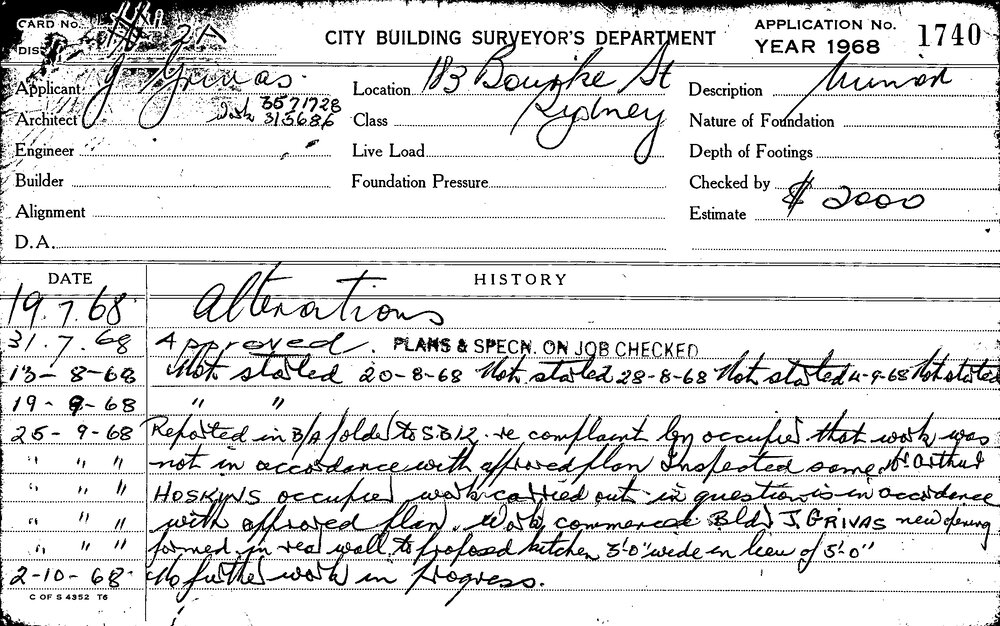 CARD No.
CITY BUILDING SURVEYOR'S DEPARTMENT
APPLICATION No. 1740
YEAR 1968
DIS
Applicant J Grivas
Location 183 Bourke St
Description Minor
Architect Work 3571728
315686
Class Sydney
Nature of Foundation
Engineer
Live Load
Depth of Footings
Builder
Foundation Pressure
Checked by
Alignment
Estimate $ 2000
D.A.
DATE HISTORY
19.7.68 Alterations
31.7.68 Approved. PLANS & SPECN. ON JOB CHECKED
13-8-68 Not started 20-8-68 Not started 28-8-68 Not started 4-9-68 Not started
19-9-68 " "
25-9-68 Reported in B/A folder to SBI2. re complaint by occupier that work was
" " " not in accordance with approved plan Inspected same Mr Arthur
" " " HOSKYNS occupier work carried out in question is in accordance
" " " with approved plan. Work commenced Bldr J. GRIVAS new opening
" " " formed in rear wall to proposed kitchen 3'0" wide in lieu of 5'0"
2-10-68. No further work in progress.
C OF S 4352 T6